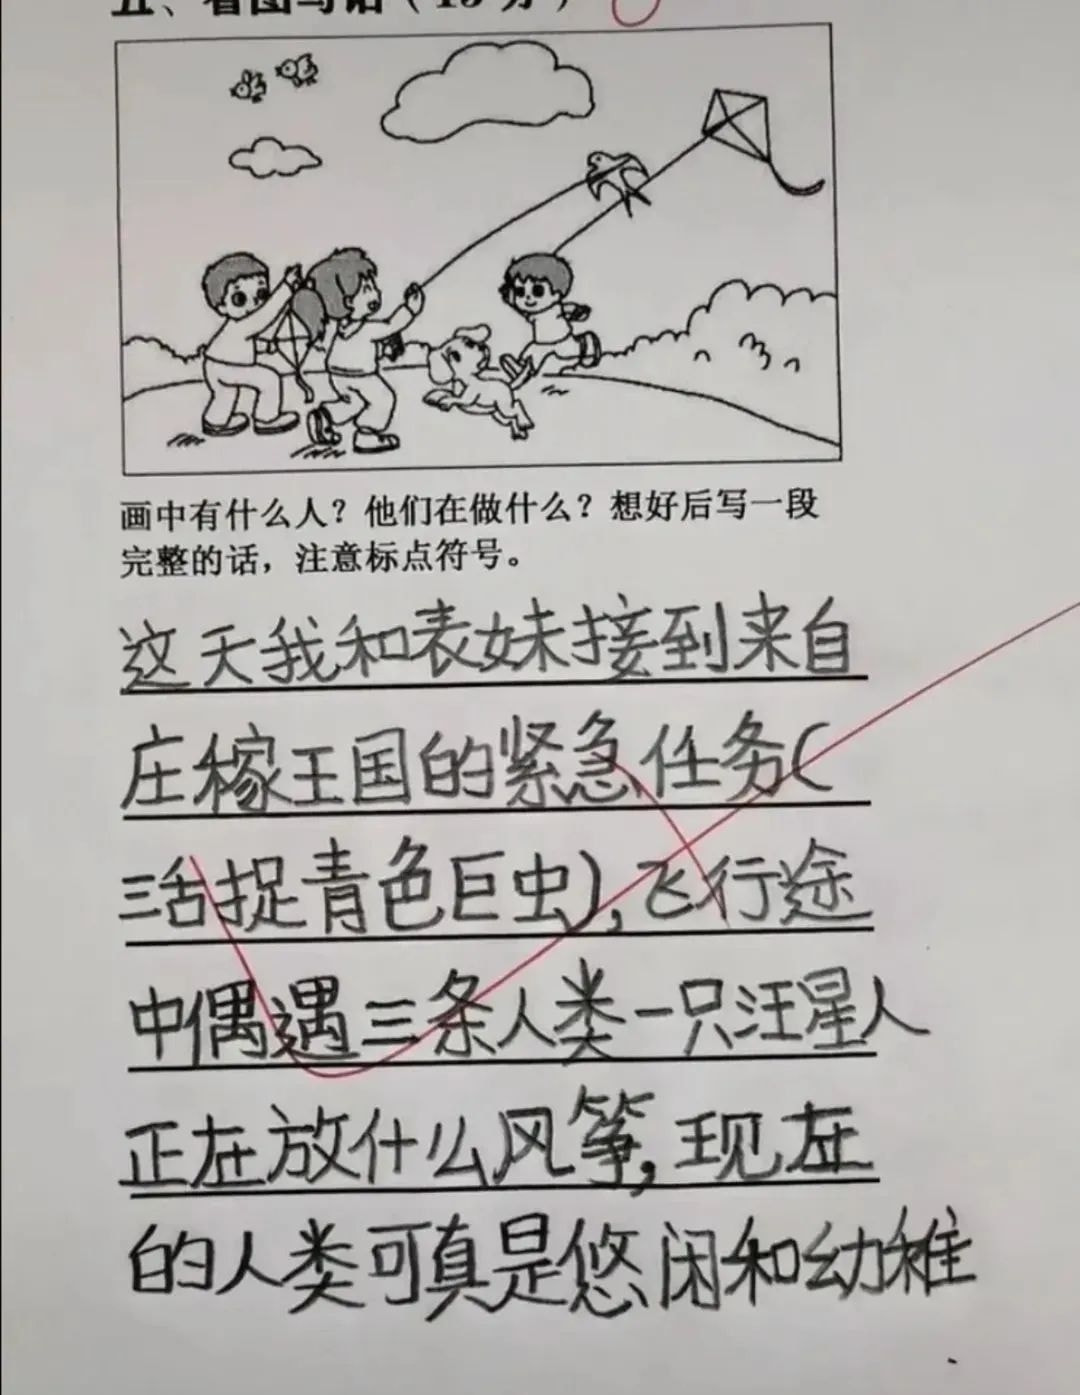 五、看图写话（15分）
画中有什么人？他们在做什么？想好后写一段
完整的话，注意标点符号。
这天我和表妹接到来自
庄稼王国的紧急任务(
三活捉青色巨虫),飞行途
中偶遇三条人类一只汪星人
正在放什么风筝,现在
的人类可真是悠闲和幼稚